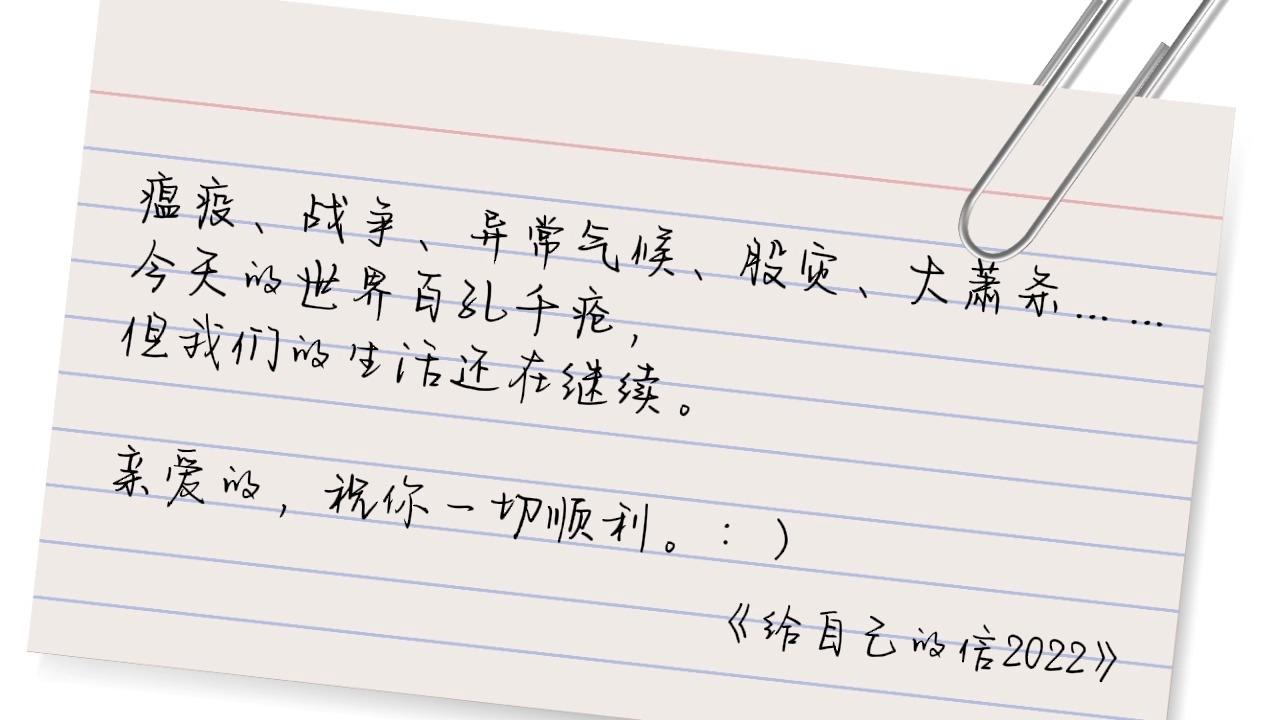 瘟疫、战争、异常气候、股灾、大萧条……
今天的世界百孔千疮，
但我们的生活还在继续。
亲爱的，祝你一切顺利。：）
《给自己的信2022》